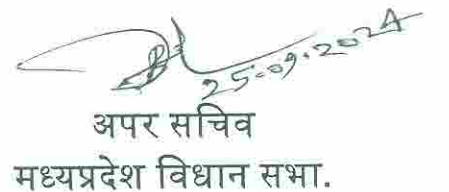 25.09.2024
अपर सचिव
मध्यप्रदेश विधान सभा.